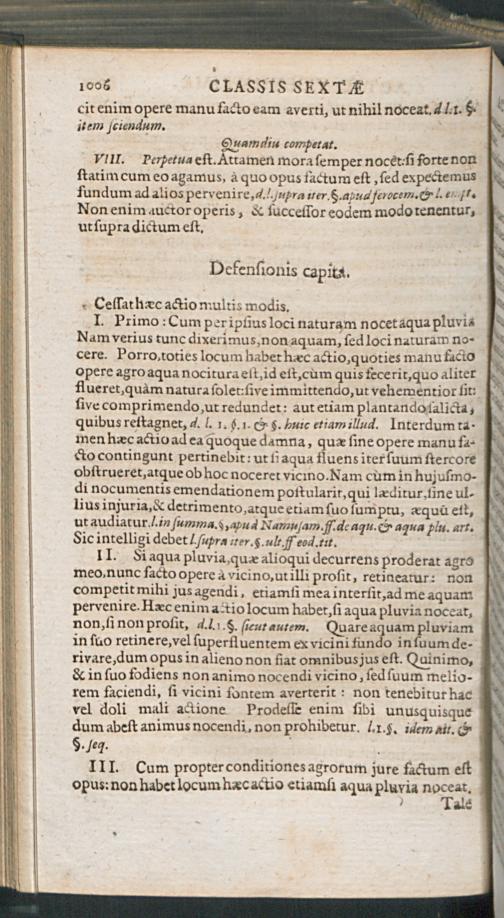 1006 CLASSIS SEXTÆ
cit enim opere manu facto eam averti, ut nihil noceat. d.l.1. §.
item sciendum.
Quamdiu competat.
VIII. Perpetua est. Attamen mora semper nocet: si forte non
statim cum eo agamus, à quo opus factum est, sed expectemus
fundum ad alios pervenire, d.l. supra iter. §. apud ferocem. & l. empt.
Non enim auctor operis, & successor eodem modo tenentur,
ut supra dictum est.
Defensionis capita.
Cessat hæc actio multis modis.
I. Primo: Cum per ipsius loci naturam nocet aqua pluvia
Nam verius tunc dixerimus, non aquam, sed loci naturam no-
cere. Porro, toties locum habet hæc actio, quoties manu facto
opere agro aqua nocitura est, id est, cùm quis fecerit, quo aliter
flueret, quàm natura solet: sive immittendo, ut vehementior sit:
sive comprimendo, ut redundet: aut etiam plantando salicta,
quibus restagnet, d. l. 1. §. 1. & §. huic etiam illud. Interdum ta-
men hæc actio ad ea quoque damna, quæ sine opere manu fa-
cto contingunt pertinebit: ut si aqua fluens iter suum stercore
obstrueret, atque ob hoc noceret vicino. Nam cùm in hujusmo-
di nocumentis emendationem postularit, qui læditur, sine ul-
lius injuria, & detrimento, atque etiam suo sumptu, æquũ est,
ut audiatur. l. in summa. §. apud Namusam. ff. de aqu. & aqua plu. art.
Sic intelligi debet l. supra iter. §. ult. ff eod. tit.
II. Si aqua pluvia, quæ alioqui decurrens proderat agro
meo, nunc facto opere à vicino, ut illi prosit, retineatur: non
competit mihi jus agendi, etiamsi mea intersit, ad me aquam
pervenire. Hæc enim actio locum habet, si aqua pluvia noceat,
non, si non prosit, d.l.1. §. sicut autem. Quare aquam pluviam
in suo retinere, vel superfluentem ex vicini fundo in suum de-
rivare, dum opus in alieno non fiat omnibus jus est. Quinimo,
& in suo fodiens non animo nocendi vicino, sed suum melio-
rem faciendi, si vicini fontem averterit: non tenebitur hac
vel doli mali actione Prodesse enim sibi unusquisque
dum abest animus nocendi, non prohibetur. l.1. §. idem ait. &
§. seq.
III. Cum propter conditiones agrorum jure factum est
opus: non habet locum hæc actio etiamsi aqua pluvia noceat.
Tale